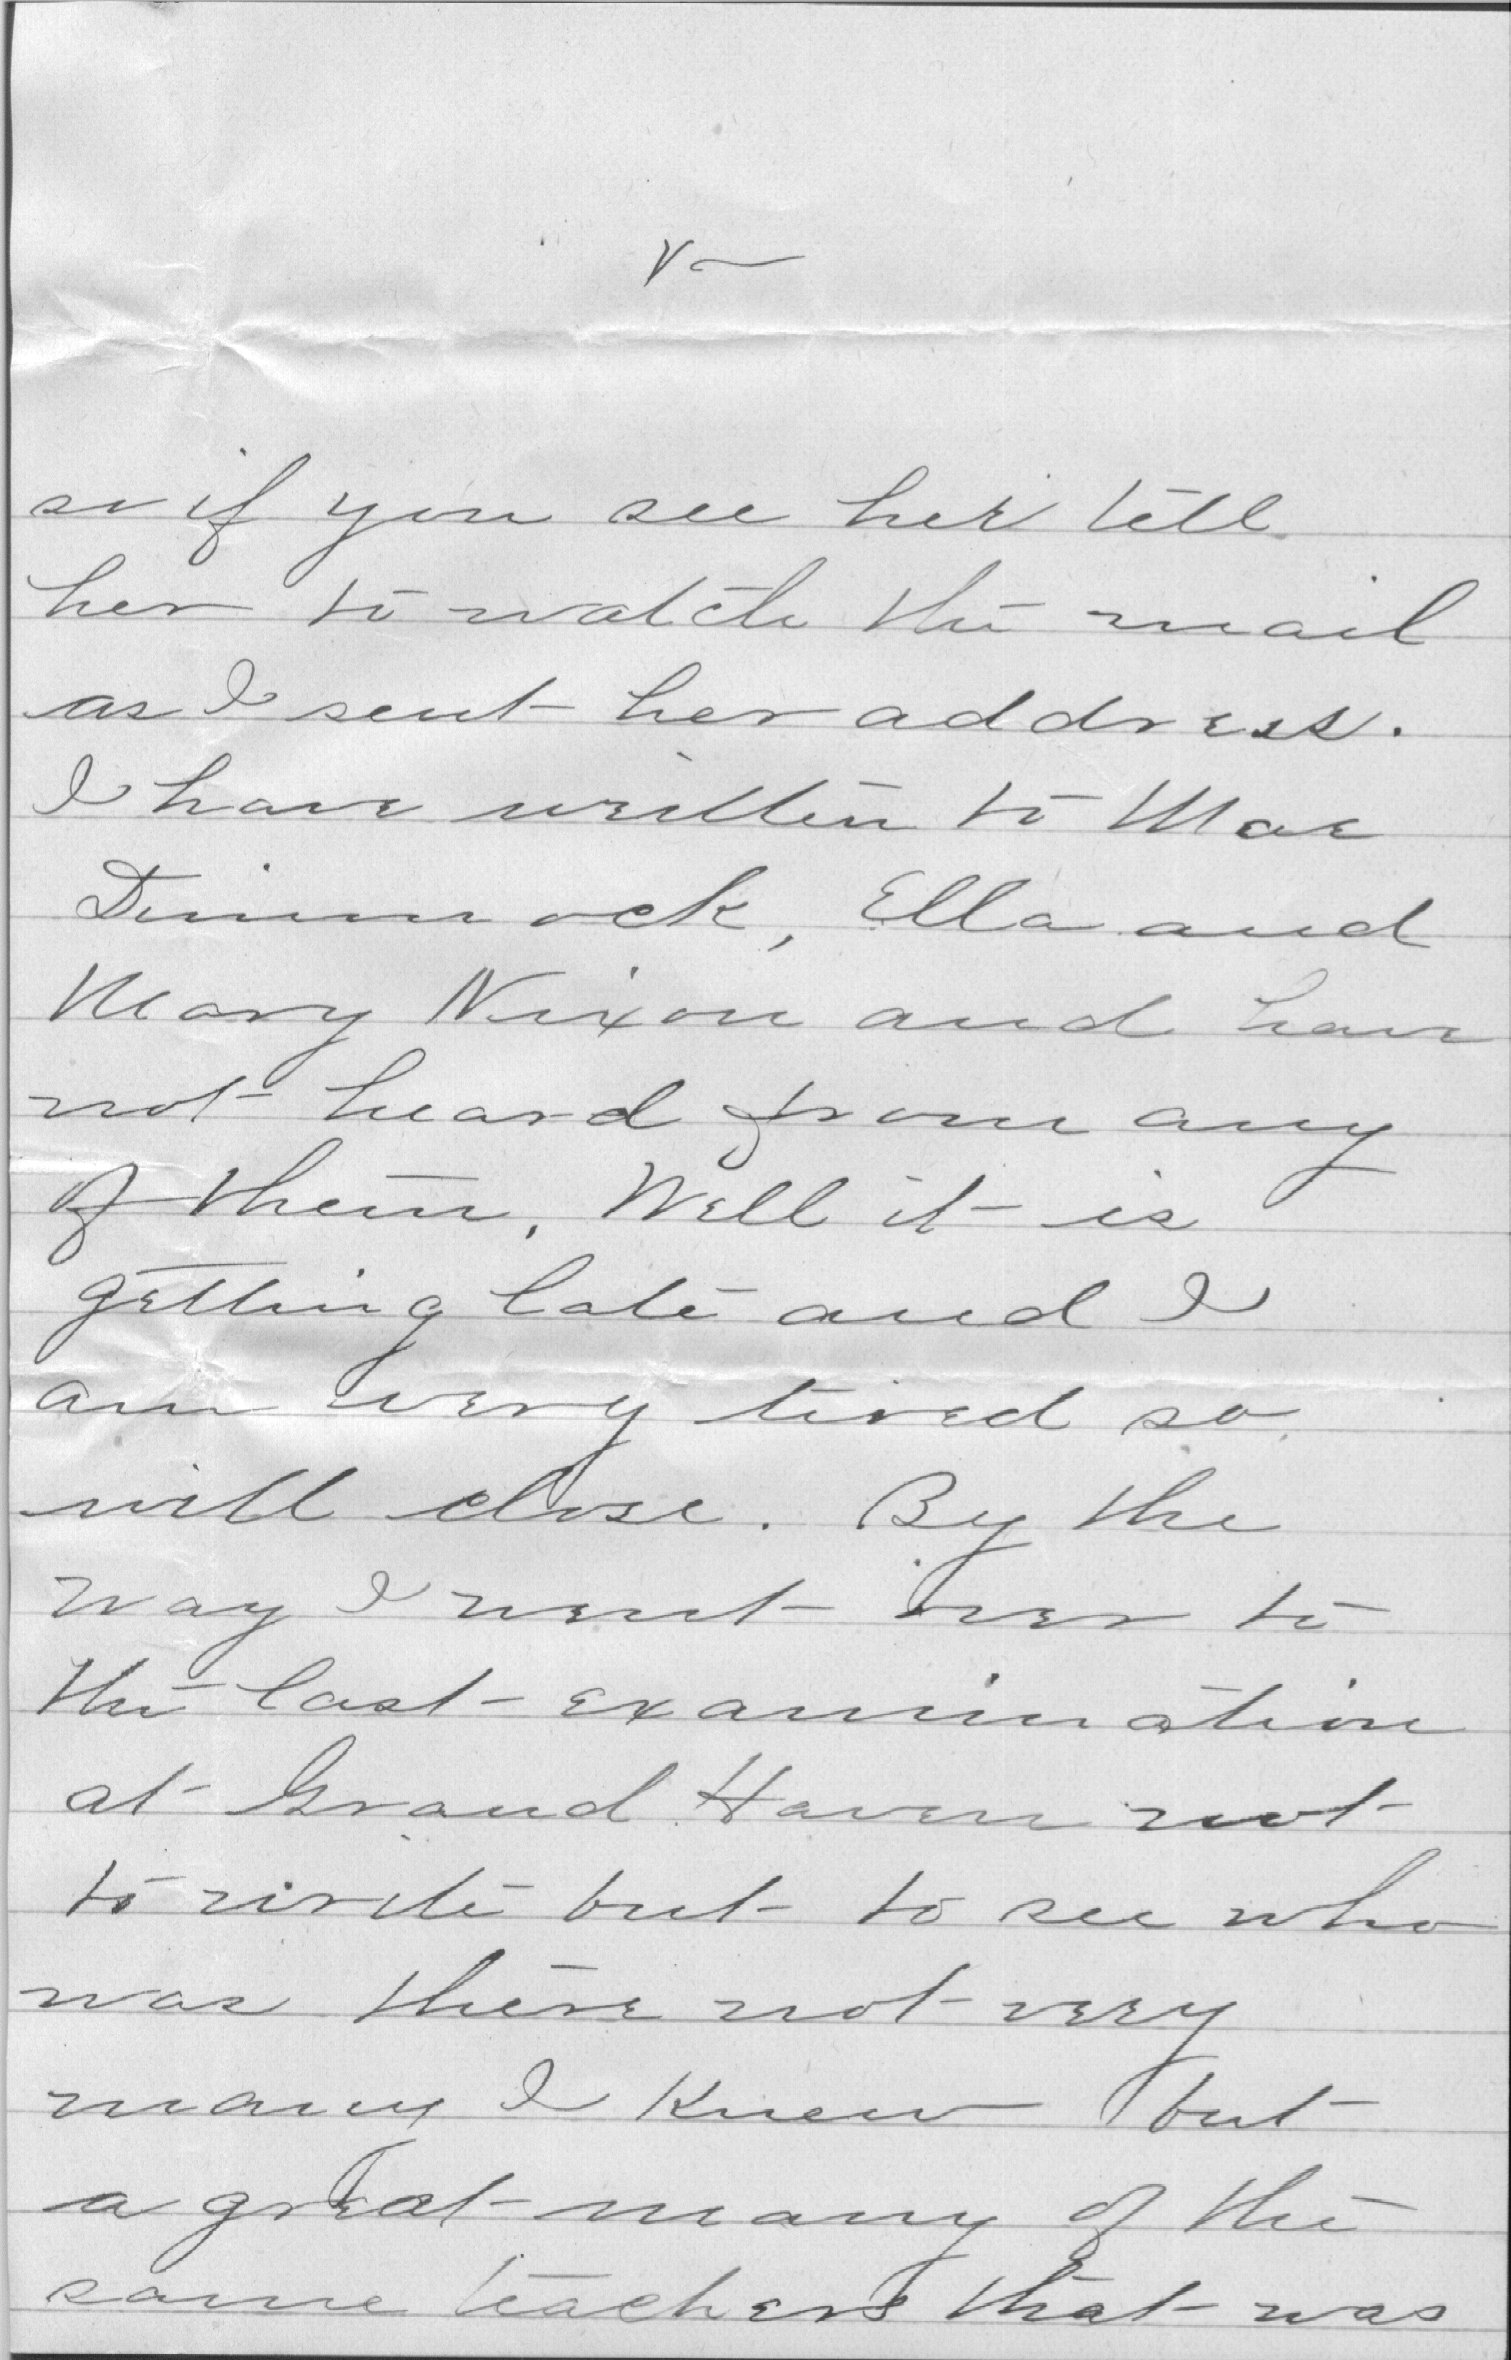 so if you see her tell
her to watch the mail
as I sent her address.
I have written to Mae
Dimmock, Ella and
Mary Nixon and have
not heard from any
of them. Well it is
getting late and I
am very tired so
will close. By the
way I went over to
the last examination
at Grand Haven not
to write but to see who
was there not very
many I knew but
a great many of the
same teachers that was